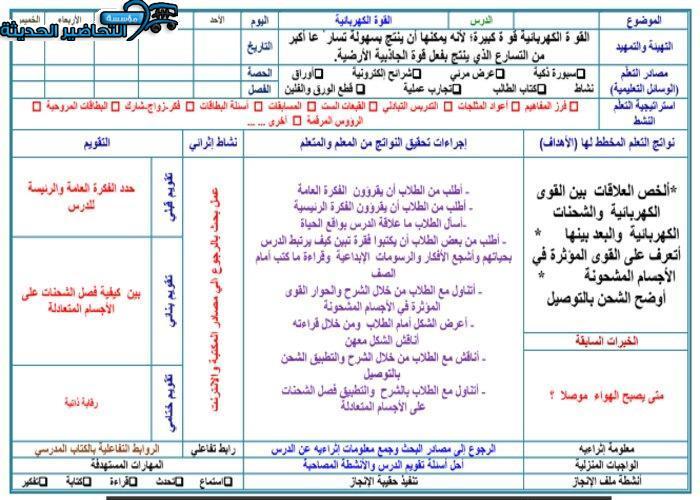 مؤسسة
التحاضير الحديثة
الموضوع الدرس القوة الكهربائية اليوم الأحد الأربعاء الخميس
التهيئة والتمهيد
القو ة الكهربائية قو ة كبيرة؛ لأنه يمكنها أن ينتج بسهولة تسار عا أكبر
من التسارع الذي ينتج بفعل قوة الجاذبية الأرضية.
التاريخ
مصادر التعلم
(الوسائل التعليمية)
□سبورة ذكية □عرض مرئي □شرائح إلكترونية □أوراق
نشاط □كتاب الطالب □تجارب عملية □ قطع الورق والفلين
الحصة
الفصل
استراتيجية التعلم
النشط
□ فرز المفاهيم □ أعواد المثلجات □ التدريس التبادلي □ القبعات الست □ المسابقات □ أسئلة البطاقات □ فكر-زواج-شارك □ البطاقات المروحية □
الرؤوس المرقمة □ أخرى ... ...
نواتج التعلم المخطط لها (الأهداف)
إجراءات تحقيق النواتج من المعلم والمتعلم
نشاط إثرائي
التقويم
*ألخص العلاقات بين القوى
الكهربائية والشحنات
الكهربائية والبعد بينها *
أتعرف على القوى المؤثرة في
الأجسام المشحونة *
أوضح الشحن بالتوصيل
الخبرات السابقة
متى يصبح الهواء موصلا ؟
- أطلب من الطلاب أن يقرؤون الفكرة العامة
- أطلب من الطلاب أن يقرؤون الفكرة الرئيسية
-أسأل الطلاب ما علاقة الدرس بواقع الحياة
- أطلب من بعض الطلاب أن يكتبوا فقرة تبين كيف يرتبط الدرس
بحياتهم وأشجع الأفكار والرسومات الإبداعية وقراءة ما كتب أمام
الصف
- أتناول مع الطلاب من خلال الشرح والحوار القوى
المؤثرة في الأجسام المشحونة
- أعرض الشكل أمام الطلاب ومن خلال قراءته
أناقش الشكل معهن
- أناقش مع الطلاب من خلال الشرح والتطبيق الشحن
بالتوصيل
- أتناول مع الطلاب بالشرح والتطبيق فصل الشحنات
على الأجسام المتعادلة
عمل بحث بالرجوع الي مصادر المكتبة والانترنت
تقويم قبلي
حدد الفكرة العامة والرئيسة
للدرس
تقويم بنائي
بين كيفية فصل الشحنات على
الأجسام المتعادلة
تقويم ختامي
رقابة ذاتية
معلومة إثراءيه الرجوع إلى مصادر البحث وجمع معلومات إثراءيه عن الدرس رابط تفاعلي الروابط التفاعلية بالكتاب المدرسي
الواجبات المنزلية أحل أسئلة تقويم الدرس والأنشطة المصاحبة المهارات المستهدفة
أنشطة ملف الإنجاز تنفيذ حقيبة الإنجاز □استماع □تحدث □قراءة □كتابة □تفكير